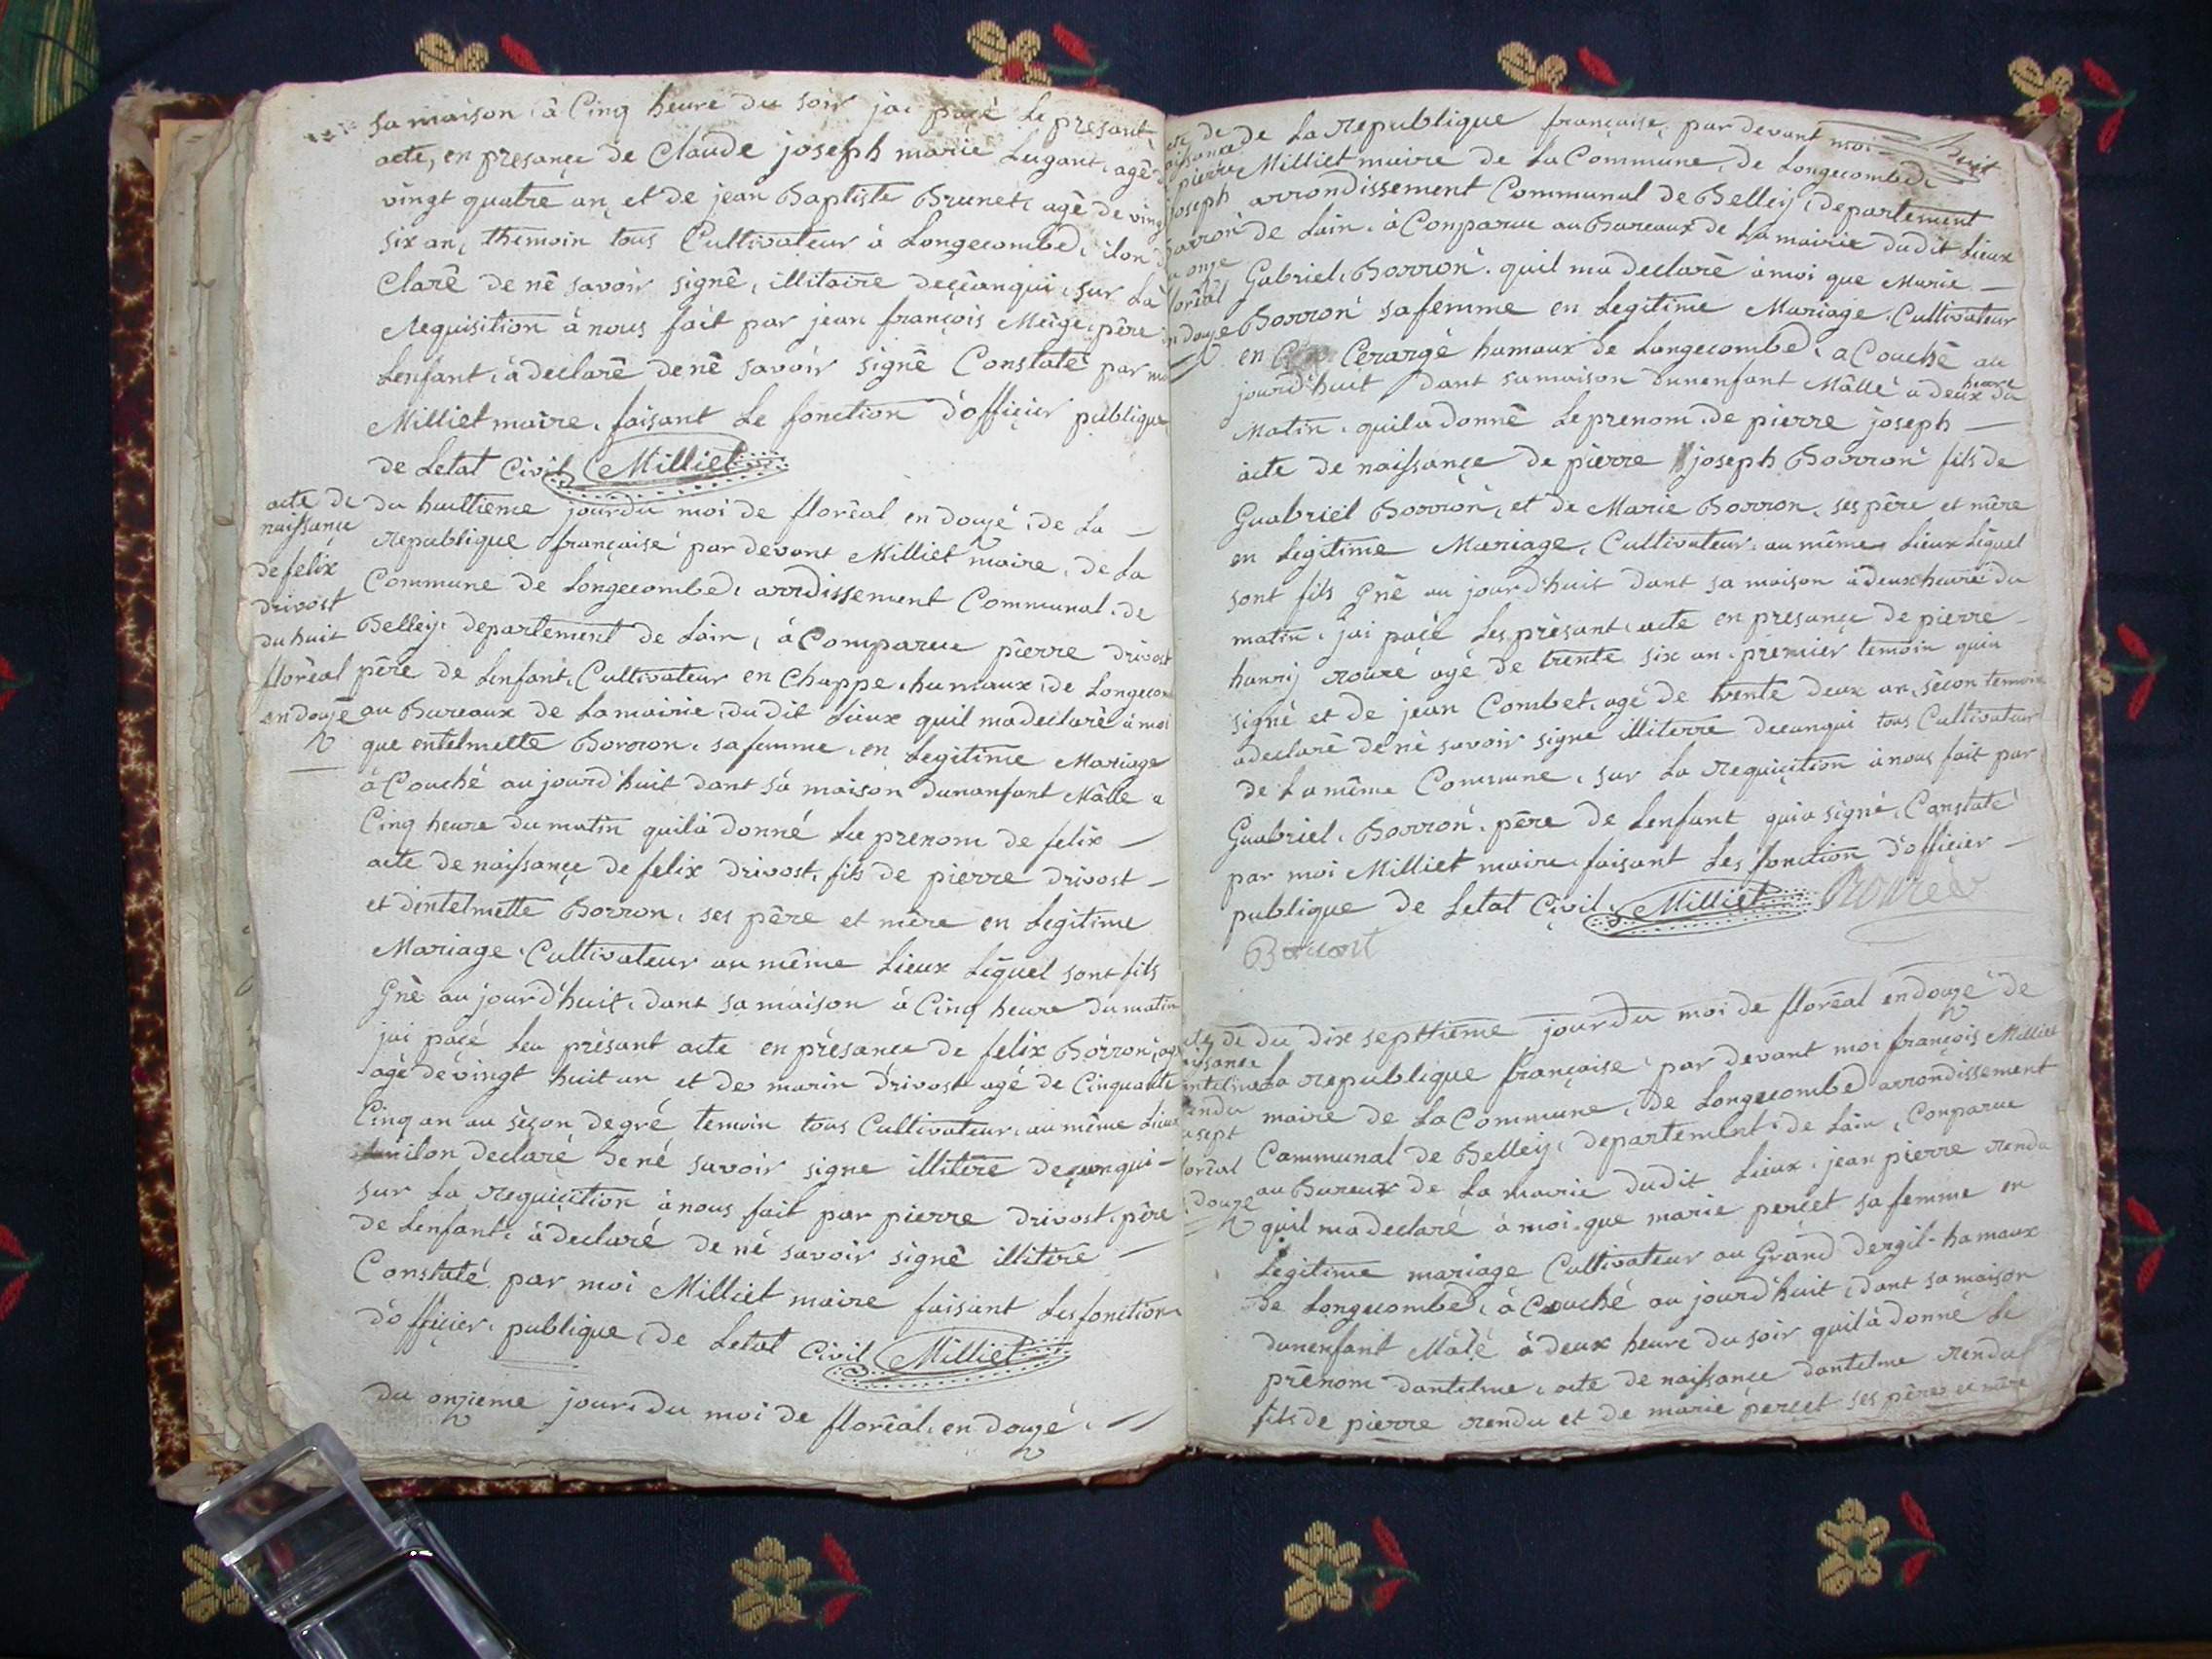 sa maison à Cinq heure du soir jai paçé Le presant
acte, en presançe de Claude joseph marie Lugant, agê
vingt quatre an, et de jean Baptiste Brunet, agê de ving
six an, themoin tous Cultivateur à Longecombe, ilon
Clarê de nê savoir signê, illitaire deçéanqui, sur La
requisition à nous fait par jean françois Meige, pêre
Lenfant, à declarê de nê savoir signê Constatê par
Milliet maire, faisant Le fonction d'offiçier publique
de Letat Civil Milliet
acte de
naissançe
de felix
drivost
du huit
florêal
en douzê
du huitieme jour du moi de florêal en douzé, de La
republique françaisé par devant Milliet maire, de La
Commune de Longecombe, arrdissement Communal, de
Belley, departement de Lain, à Comparue pierre drivost
pêre de Lenfant, Cultivateur en Chappe, humaux, de Longecom
au Bureaux de La mairie, du dit Lieux quil ma declarê à moi
que entelmette Borron, sa femme, en Legitime Mariage
à Couché au jourd'huit dant sa maison dunanfant Mâlle a
Cinq heure du matin quilà donné Le prenom de felix
acte de naissançe de felix drivost, fils de pierre drivost
et dentelmette Borron, ses pêre et mêre en Legitime
Mariage Cultivateur au même Lieux Lêquel sont fils
Gnê au jourd'huit, dant sa maison à Cinq heure du matin
jai paçé Leu présant acte en présance de felix Borron, ag
agê de vingt huit an et de marin drivost agé de Cinquante
Cinq an au seçon degré temoin tous Cultivateur, au même Lieux
ilon declaré de né savoir signe illitére deçanqui
sur La requiçition à nous fait par pierre drivost, pêre
de Lenfant, à declaré de né savoir signê illitére
Constaté par moi Milliet maire faisant Les fonction
d'offiçier, publique, de Letat Civil Milliet
du onzieme jour, du moi de florêal, en douzé,
de
pierre
joseph
Borron
onze
florêal
douze
de La republique française, par devant moi
Milliet maire de La Commune, de Longecombe,
arrondissement Communal de Belley, departement
de Lain, à Conparue au Bureaux de La mairie dudit Lieux
Gabriel, Borron, quil ma declarê à moi que Marie
Borron sa femme en Legitime Mariage, Cultivateur
en Cerargé humaux de Longecombe, a Couchê au
jourd'huit dant sa maison dunenfant Mâllé a deux heure du
Matin, quila donnê Le prenom de pierre joseph
acte de naissançe de pierre joseph Borron fils de
Guabriel Borron, et de Marie Borron, ses pêre et mêre
en Legitime Mariage, Cultivateur, au même Lieux Lêquel
sont fils Gnê au jourd'huit dant sa maison à deux heure du
matin, jai paçê Les présant acte en presançe de pierre
hanrij roure agé de trente six an, premier temoin quia
signé et de jean Combet, agé de trente deux an, seçon temoin
adeclaré de né savoir signe illiterre deçanqui tous Cultivateur
de La même Commune, sur La requiçition à nous fait par
Guabriel, Borron, pêre de Lenfant quia signé, Constaté
par moi Milliet maire, faisant Les fonction d'offiçier
publique de Letat Çivil, Milliet
du
sept
florêal
douze
du dix septtieme jour du moi de florêal en douzê de
La republique françaisé par devant moi françois Milliet
maire de La Commune, de Longecombe arrondissement
Communal de Belley, departement de Lain, Conparue
au Bureux de La mairie dudit Lieux, jean pierre rendu
quil ma declaré à moi, que marie perçet sa femme en
Legitime mariage Cultivateur au Grand dergil hamaux
de Longecombe, à Couché au jourd'huit, dant sa maison
dunenfant Mâlé à deux heure du soir quilà donné Le
prênom dantelme, acte de naissançe dantelme rendu
fils de pierre rendu et de marie perçet ses pêre et mêre